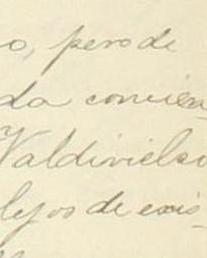 o, pero de
da concien-
Valdivielso
lejos de exis-